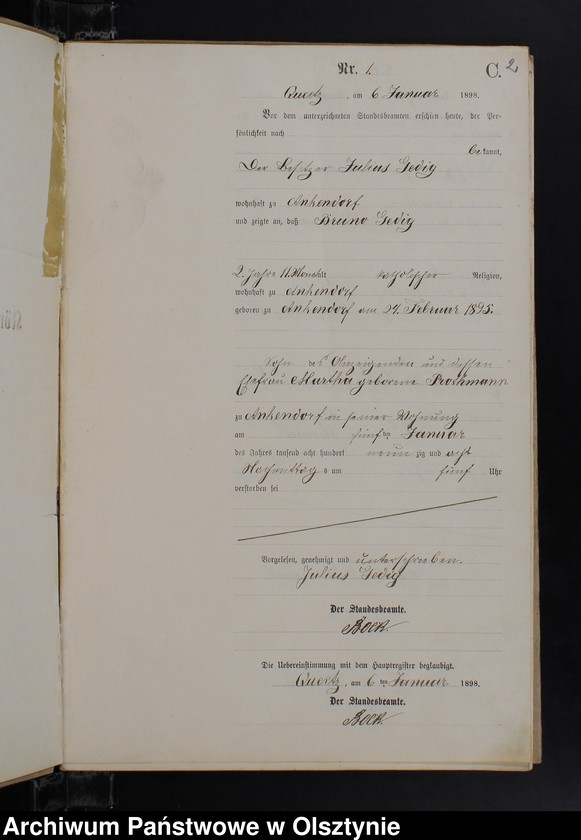 Nr. 1.
C.
2
Queetz, am 6 Januar 1898.
Vor dem unterzeichneten Standesbeamten erschien heute, der Per-
sönlichkeit nach
bekannt,
Der Besitzer Julius Gedig
wohnhaft zu Ankendorf
und zeigte an, daß Bruno Gedig
2 Jahre 11 Monat alt katholischer Religion,
wohnhaft zu Ankendorf
geboren zu Ankendorf am 24. Februar 1895.
Sohn des Anzeigenden und dessen
Ehefrau Martha geborene Prothmann
zu Ankendorf in seiner Wohnung
am fünften Januar
des Jahres tausend acht hundert neunzig und acht
Nachmittags um fünf Uhr
verstorben sei
Vorgelesen, genehmigt und unterschrieben.
Julius Gedig
Der Standesbeamte.
Bock.
Die Uebereinstimmung mit dem Hauptregister beglaubigt.
Queetz, am 6ten Januar 1898.
Der Standesbeamte.
Bock.
Archiwum Państwowe w Olsztynie